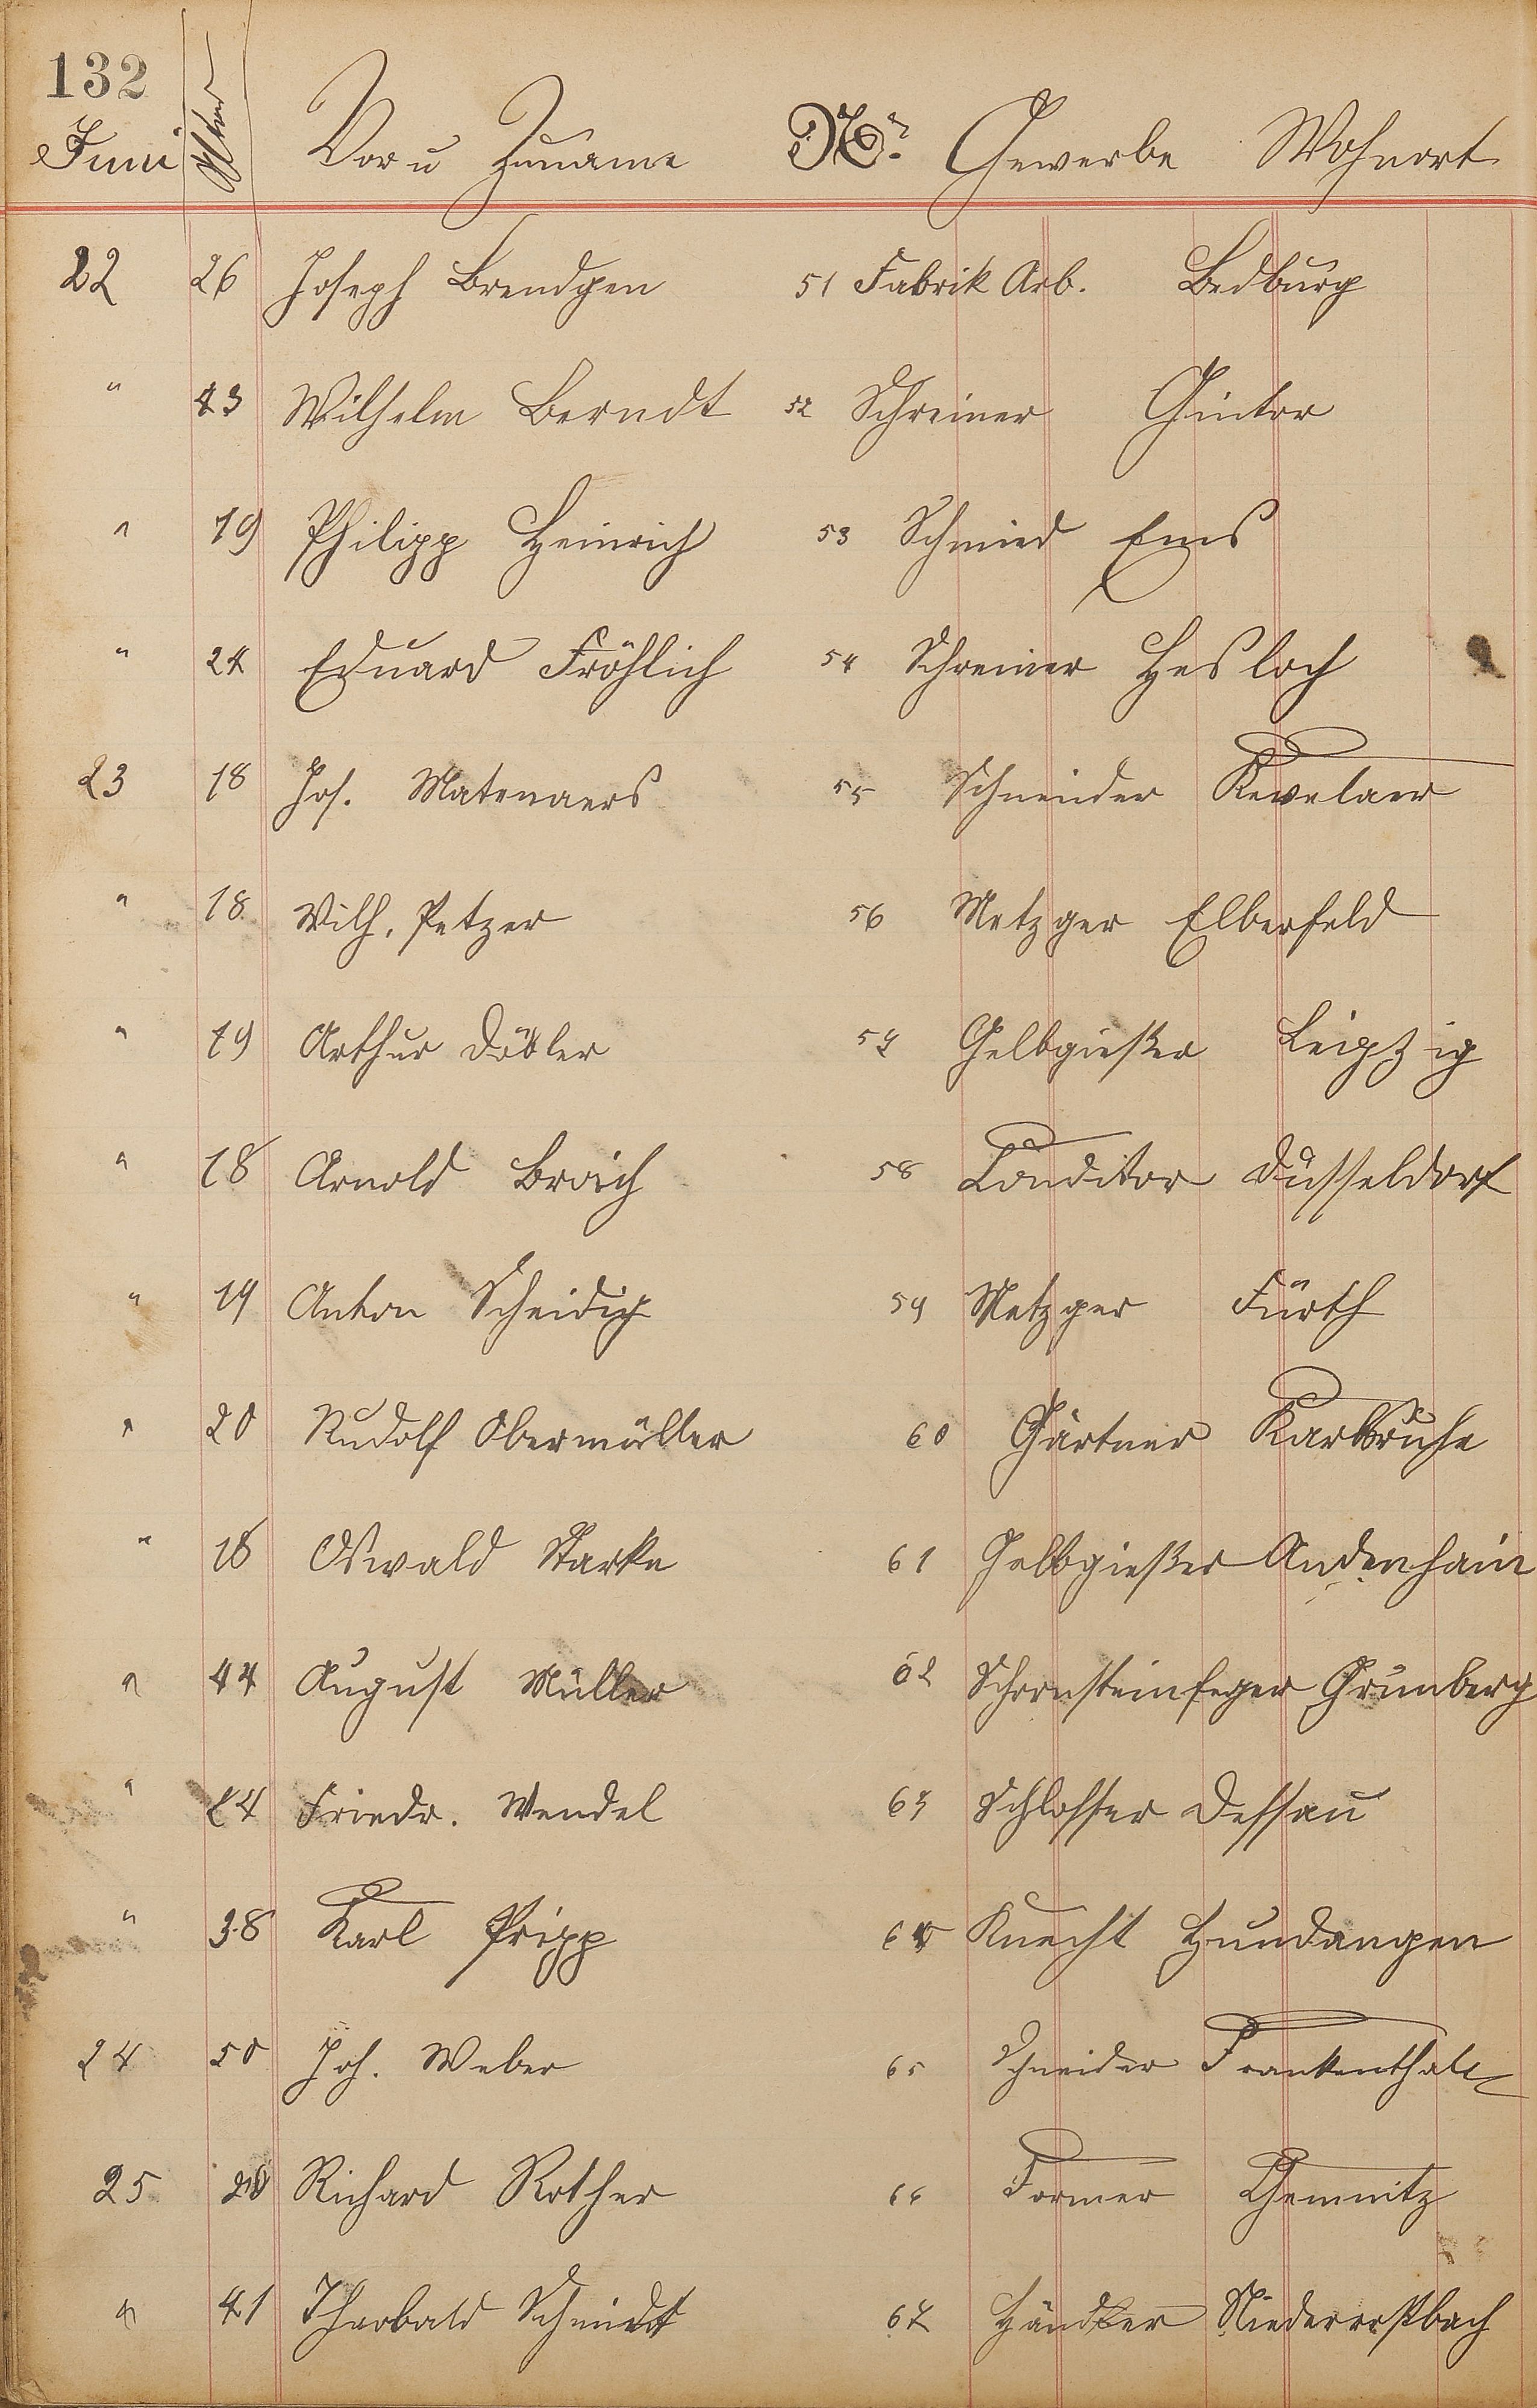 132
Juni Alter Vor u Zuname No. Gewerbe Wohnort
22 26 Joseph Brendgen 51 Fabrik Arb. Bedburg
" 43 Wilhelm Berndt 52 Schreiner
" 19 Philipp Heinrich 53 Schmied Ems
" 24 Eduard Fröhlich 54 Schreiner Hesloch
23 18 Jos. Matenaers 55 Schneider Kevelaer
" 18 Wilh. Petzer 56 Metzger Elberfeld
" 19 Arthur Döbler 57 Gelbgießer Leipzig
" 18 Arnold Broich 58 Conditor Düsseldorf
" 19 Anton Scheidig 59 Metzger Fürth
" 20 Rudolf Obermüller 60 Gärtner Karlsruhe
" 18 Oswald Starke 61 Gelbgießer Audenhain
" 44 August Müller 62 Schornsteinfeger Grünberg
" 24 Friedr. Wendel 63 Schlosser Dessau
" 38 Karl Pripp 64 Knecht Hundangen
24 50 Joh. Weber 65 Schneider Frankenthal
25 20 Richard Rother 66 Former Chemnitz
" 41 Theobald Schmidt 67 Händler